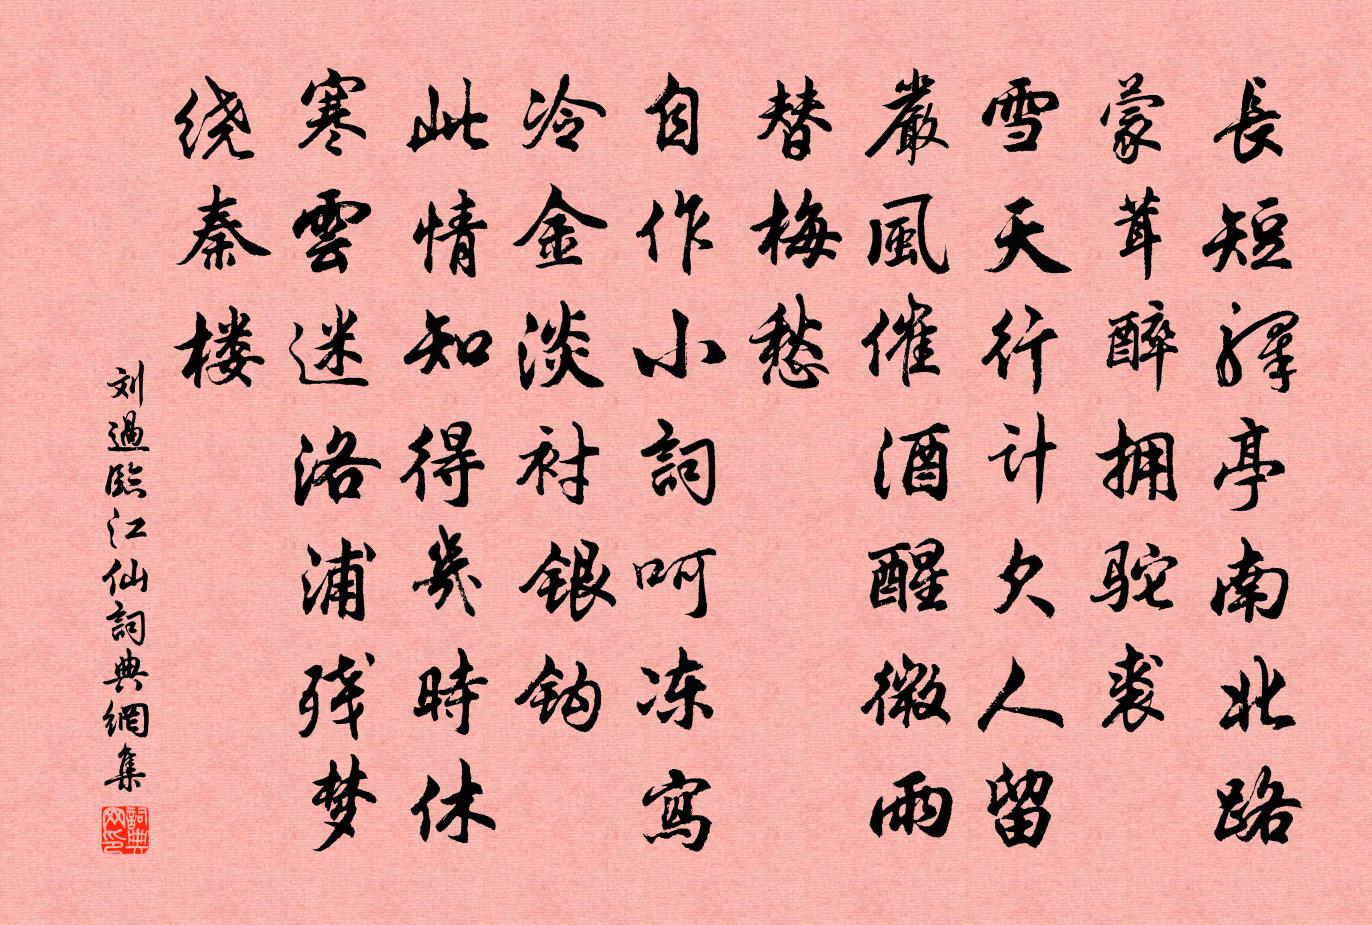 長短驛亭南北路
蒙茸醉拥駝裘
雪天行计欠人留
嚴風催酒醒微雨
替梅愁
自作小詞呵冻寫
冷金淡衬銀钩
此情知得幾時休
寒雲迷洛浦残梦
绕秦楼
刘過臨江仙詞典網集
詞典网印